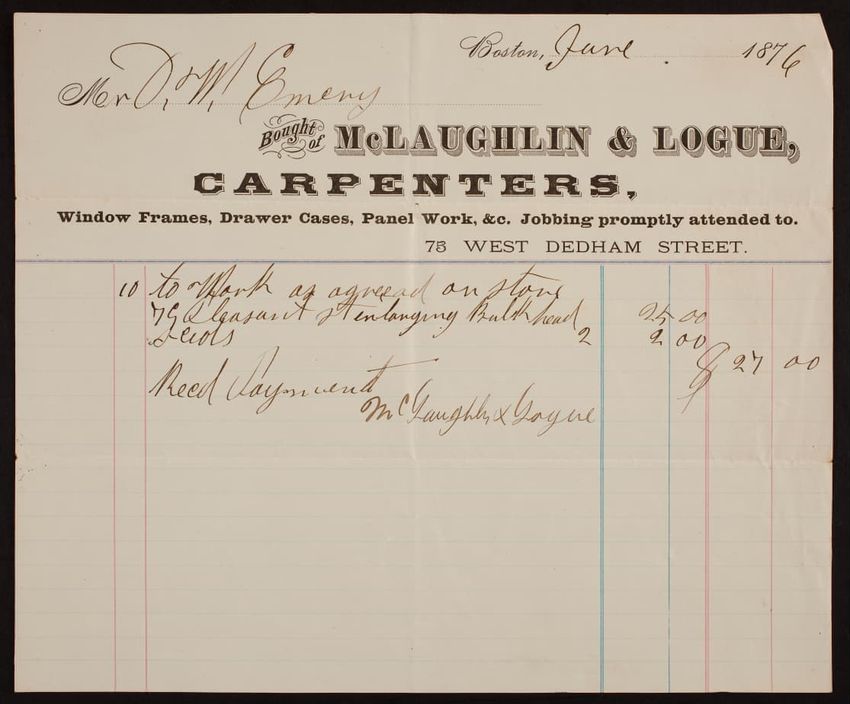 Boston, June 1876
Mr D. W. Emery
Bought of McLAUGHLIN & LOGUE,
CARPENTERS,
Window Frames, Drawer Cases, Panel Work, &c. Jobbing promptly attended to.
75 WEST DEDHAM STREET.
10 to Work as agreead on store
Pleasant St enlarging Bulkhead 25 00
2 2 00
$ 27 00
Recd Payment
McLaughlin & Logue